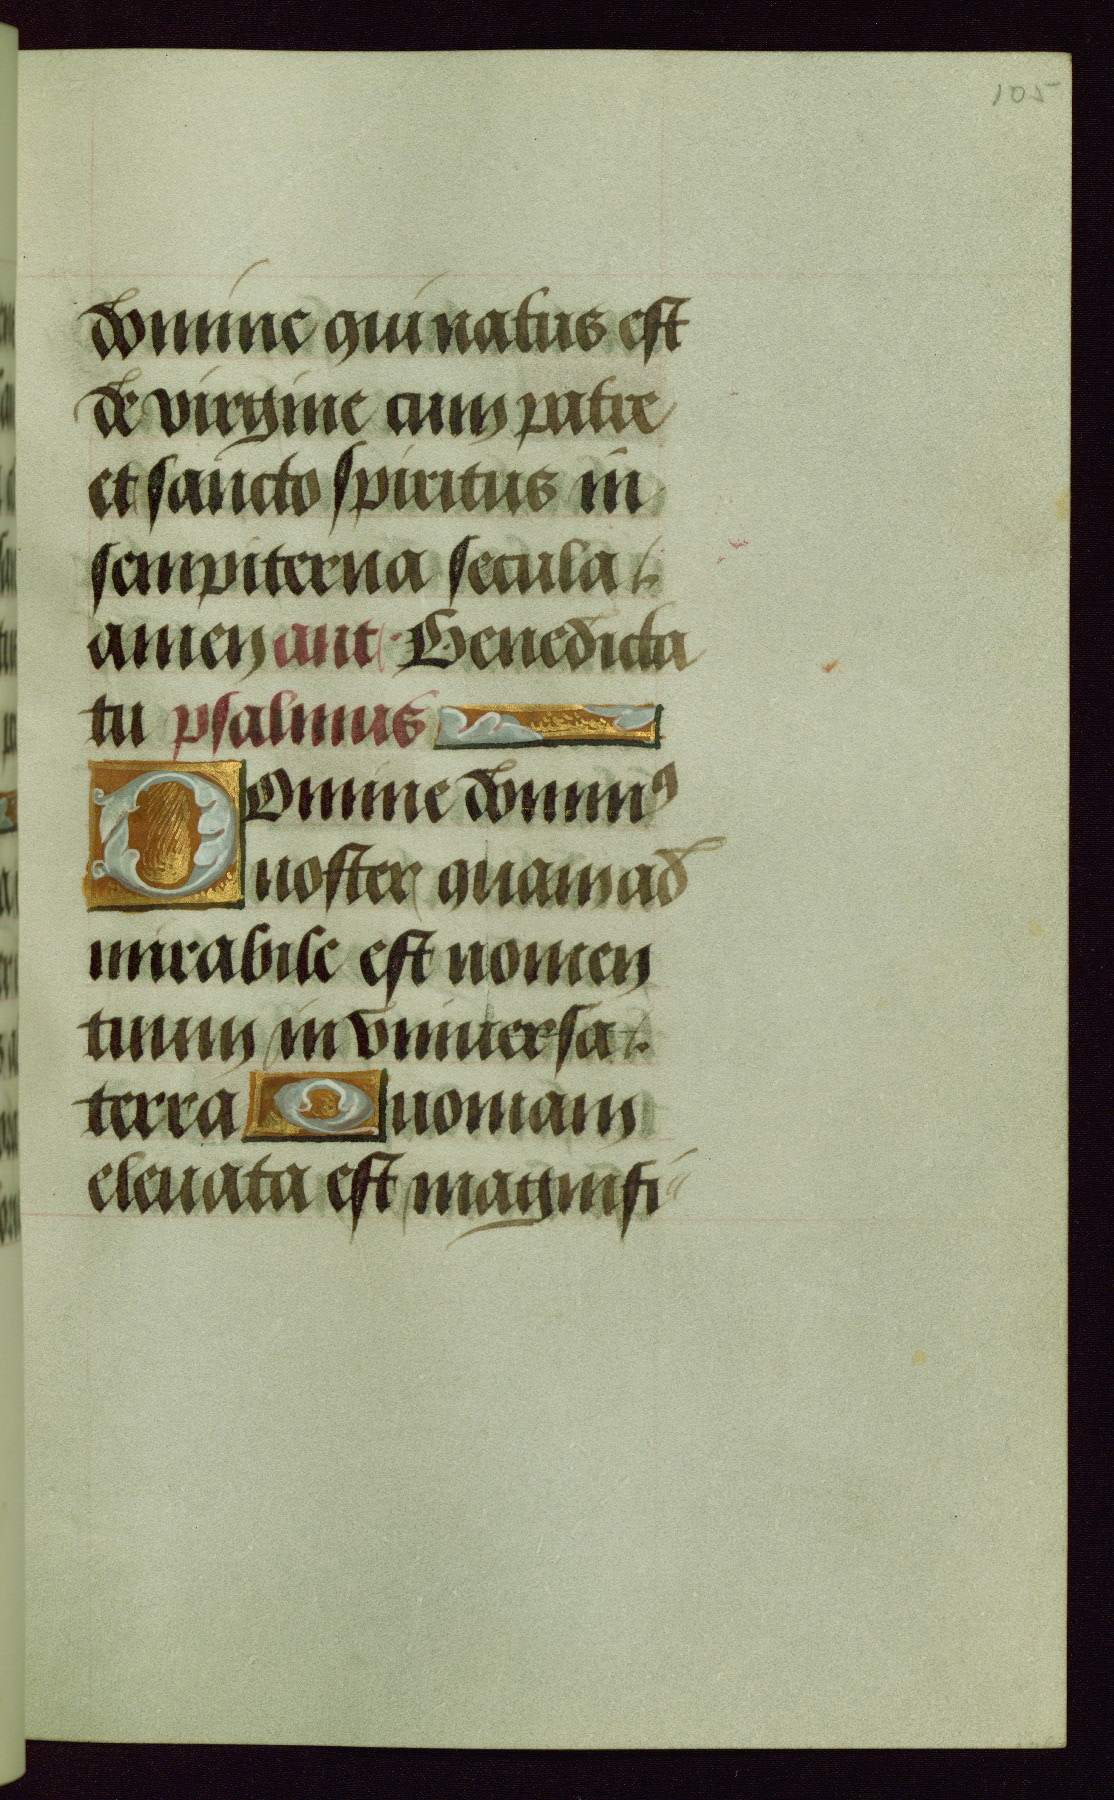 105
domine qui natus est
de virgine cum patre
et sancto spiritus in
sempiterna secula
amen ant Benedicta
tu psalmus
Domine dominꝰ
noster quam ad
mirabile est nomen
tuum in vniuersa
terra Quoniam
eleuata est magnifi